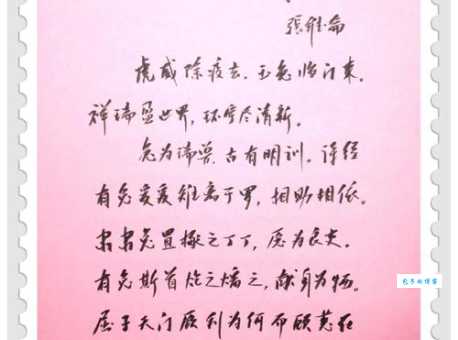 張维龠
虎威除疫去，玉兔临门来。
祥瑞盈世界，环宇尽清新。
兔为瑞兽，古有明训。诗经
有兔爰爰雉离于罗，相助相依。
肃肃兔罝椓之丁丁，愿为良夫。
有兔斯首炮之燔之，献身为物。
屈子天门厥利为何而顾菟在